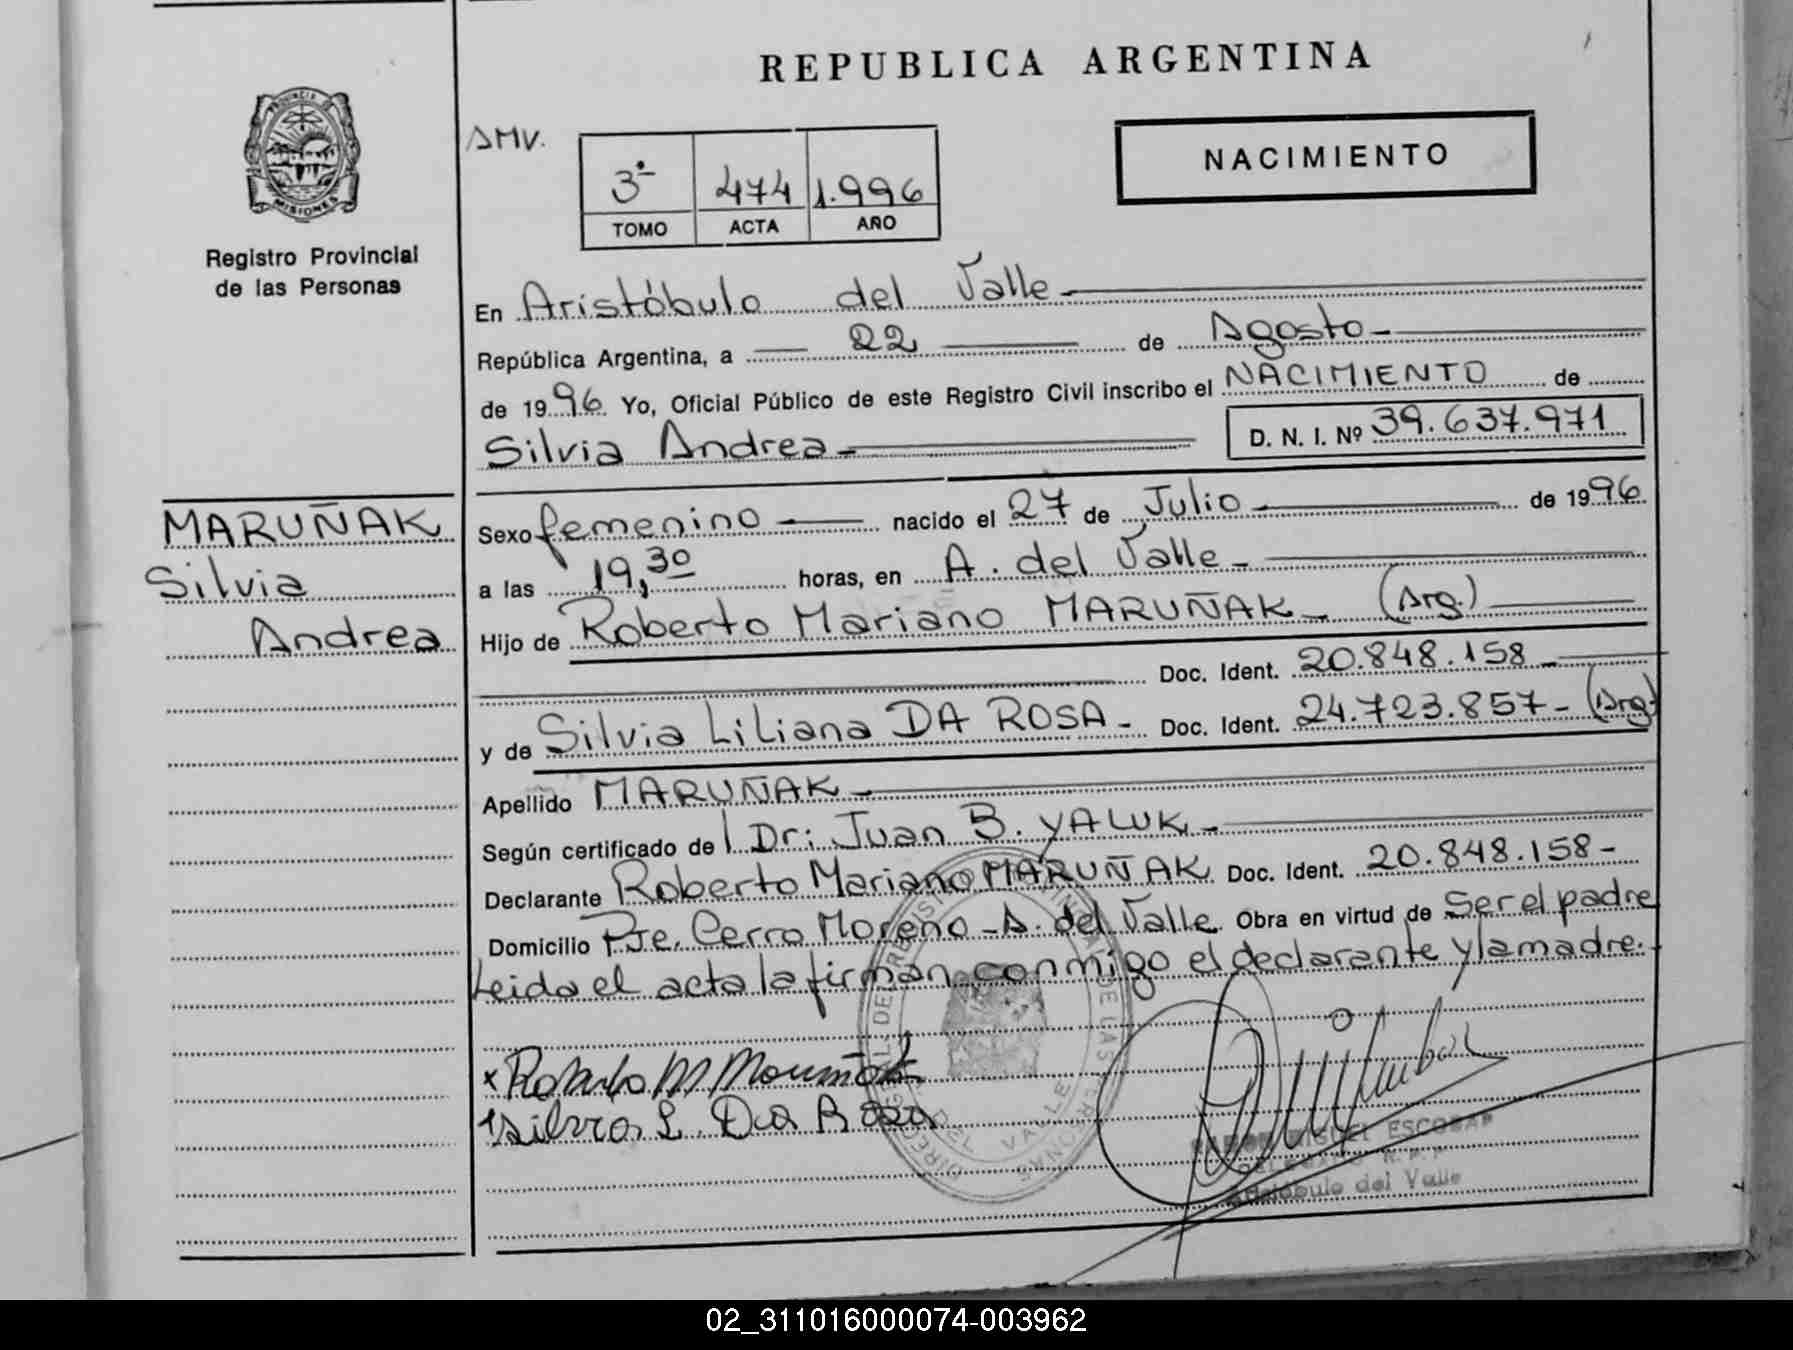 REPUBLICA ARGENTINA
PROVINCIA DE
MISIONES
Registro Provincial
de las Personas
SMV.
NACIMIENTO
3º 474 1.996
TOMO ACTA AÑO
En Aristóbulo del Valle
República Argentina, a 22 de Agosto
de 1996 Yo, Oficial Público de este Registro Civil inscribo el NACIMIENTO de
Silvia Andrea D. N. I. Nº 39.637.971
MARUÑAK
Silvia
Andrea
Sexo femenino nacido el 27 de Julio de 1996
a las 19,30 horas, en A. del Valle
Hijo de Roberto Mariano MARUÑAK (Arg.)
Doc. Ident. 20.848.158
y de Silvia Liliana DA ROSA Doc. Ident. 24.723.857 (Arg)
Apellido MARUÑAK
Según certificado de Dr: Juan B. YALUK
Declarante Roberto Mariano MARUÑAK Doc. Ident. 20.848.158
Domicilio Pje. Cerro Moreno - A. del Valle Obra en virtud de Ser el padre
Leida el acta la firman conmigo el declarante y la madre.
Silvia L. Da Rosa
MIGUEL ESCOBAR
DELEGADO R.P.P.
Aristóbulo del Valle
02_311016000074-003962